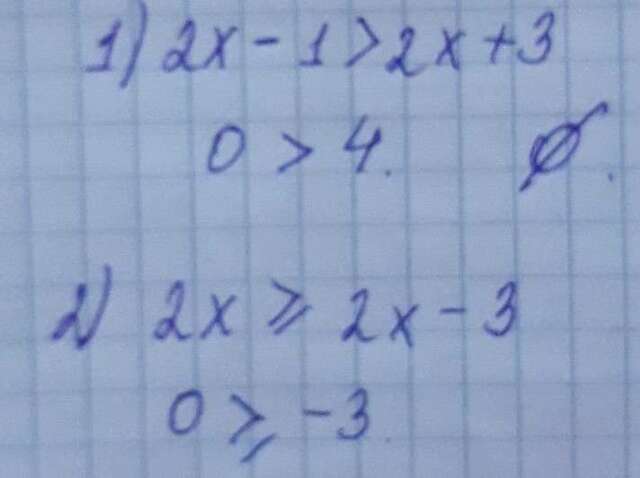 1) 2x - 1 > 2x + 3
0 > 4. Ø.
2) 2x ⩾ 2x - 3
0 ⩾ -3.